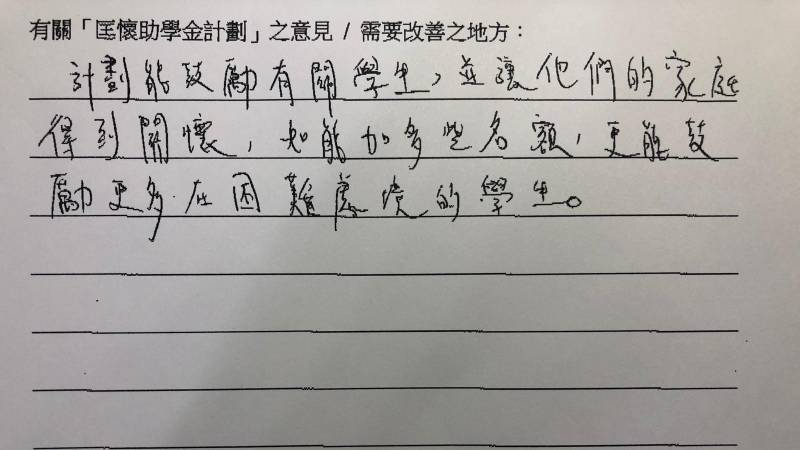 有關「匡懷助學金計劃」之意見 / 需要改善之地方：
計劃能鼓勵有關學生，並讓他們的家庭
得到關懷，如能加多些名額，更能鼓
勵更多在困難處境的學生。